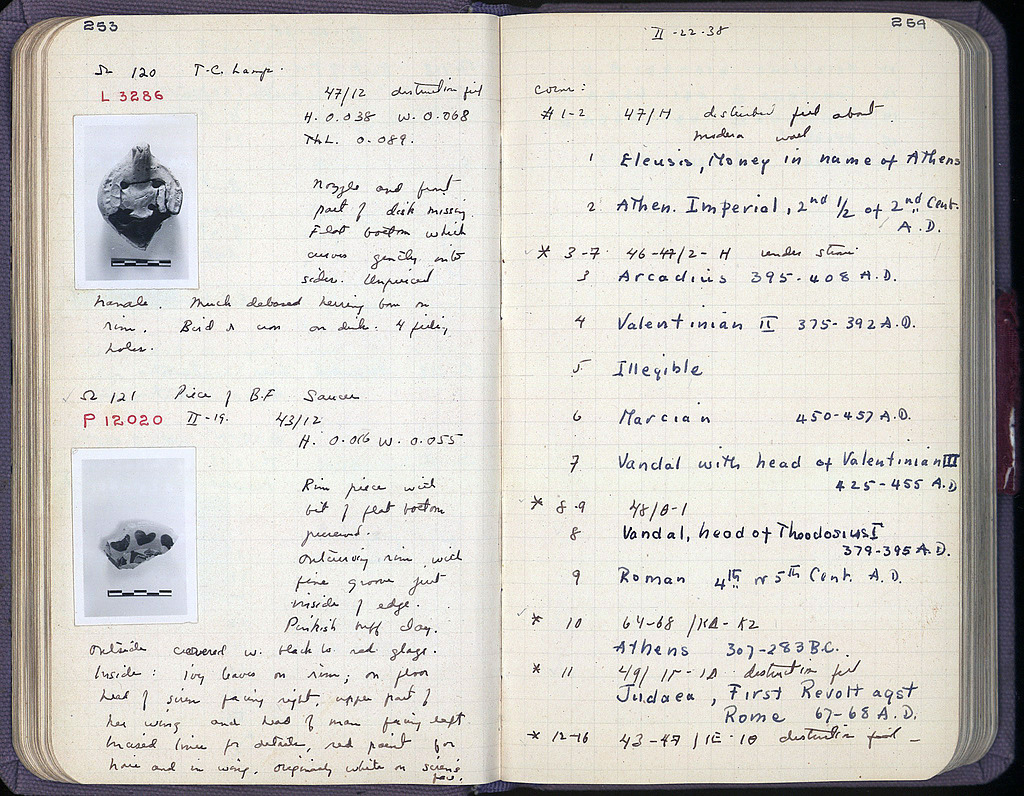 253
Ω 120 T.C. Lamp.
L 3286
47/12 destruction fill
H. 0.038 W. 0.068
Th L. 0.089.
Nozzle and front
part of disk missing
Flat bottom which
curves gently into
sides. Unpierced
handle. Much debased herring bone on
rim. Bird & on disk. 4 filling
holes.
Ω 121 Piece of B.F. Saucer
P 12020 II-19. 43/12
H. 0.016 W. 0.055
Rim piece with
bit of flat bottom
preserved.
Outcurving rim with
fine groove just
inside of edge.
Pinkish buff clay.
Outside covered w. black to red glaze.
Inside: ivy leaves on rim; on floor
head of siren facing right, upper part of
her wing and head of man facing left
Incised lines for details, red paint for
hair and in wing. Originally white on siren's
face.
259
II-22-38
Coins:
#1-2 47/H disturbed fill about
modern wall
1 Eleusis, Money in name of Athens
2 Athen. Imperial, 2nd 1/2 of 2nd Cent.
A.D.
* 3-7 46-47/2-H under
3 Arcadius 395-408 A.D.
4 Valentinian II 375-392 A.D.
5 Illegible
6 Marcian 450-457 A.D.
7 Vandal with head of Valentinian III
425-455 A.D
* 8-9 48/
8 Vandal, head of Thodosius I
379-395 A.D.
9 Roman 4th or 5th Cent. A.D.
* 10 64-68 /KA-K2
Athens 307-283 B.C.
* 11 49/ destruction fill
Judaea, First Revolt agst
Rome 67-68 A.D.
* 12-16 43-47 /IE-10 destruction fill -